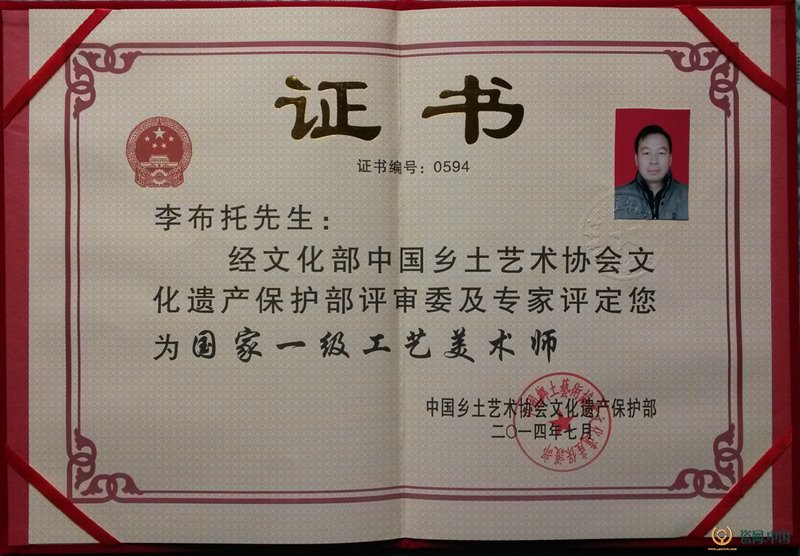 证书
证书编号：0594
李布托先生：
经文化部中国乡土艺术协会文
化遗产保护部评审委及专家评定您
为国家一级工艺美术师
中国乡土艺术协会文化遗产保护部
二〇一四年七月
瓷网·中国